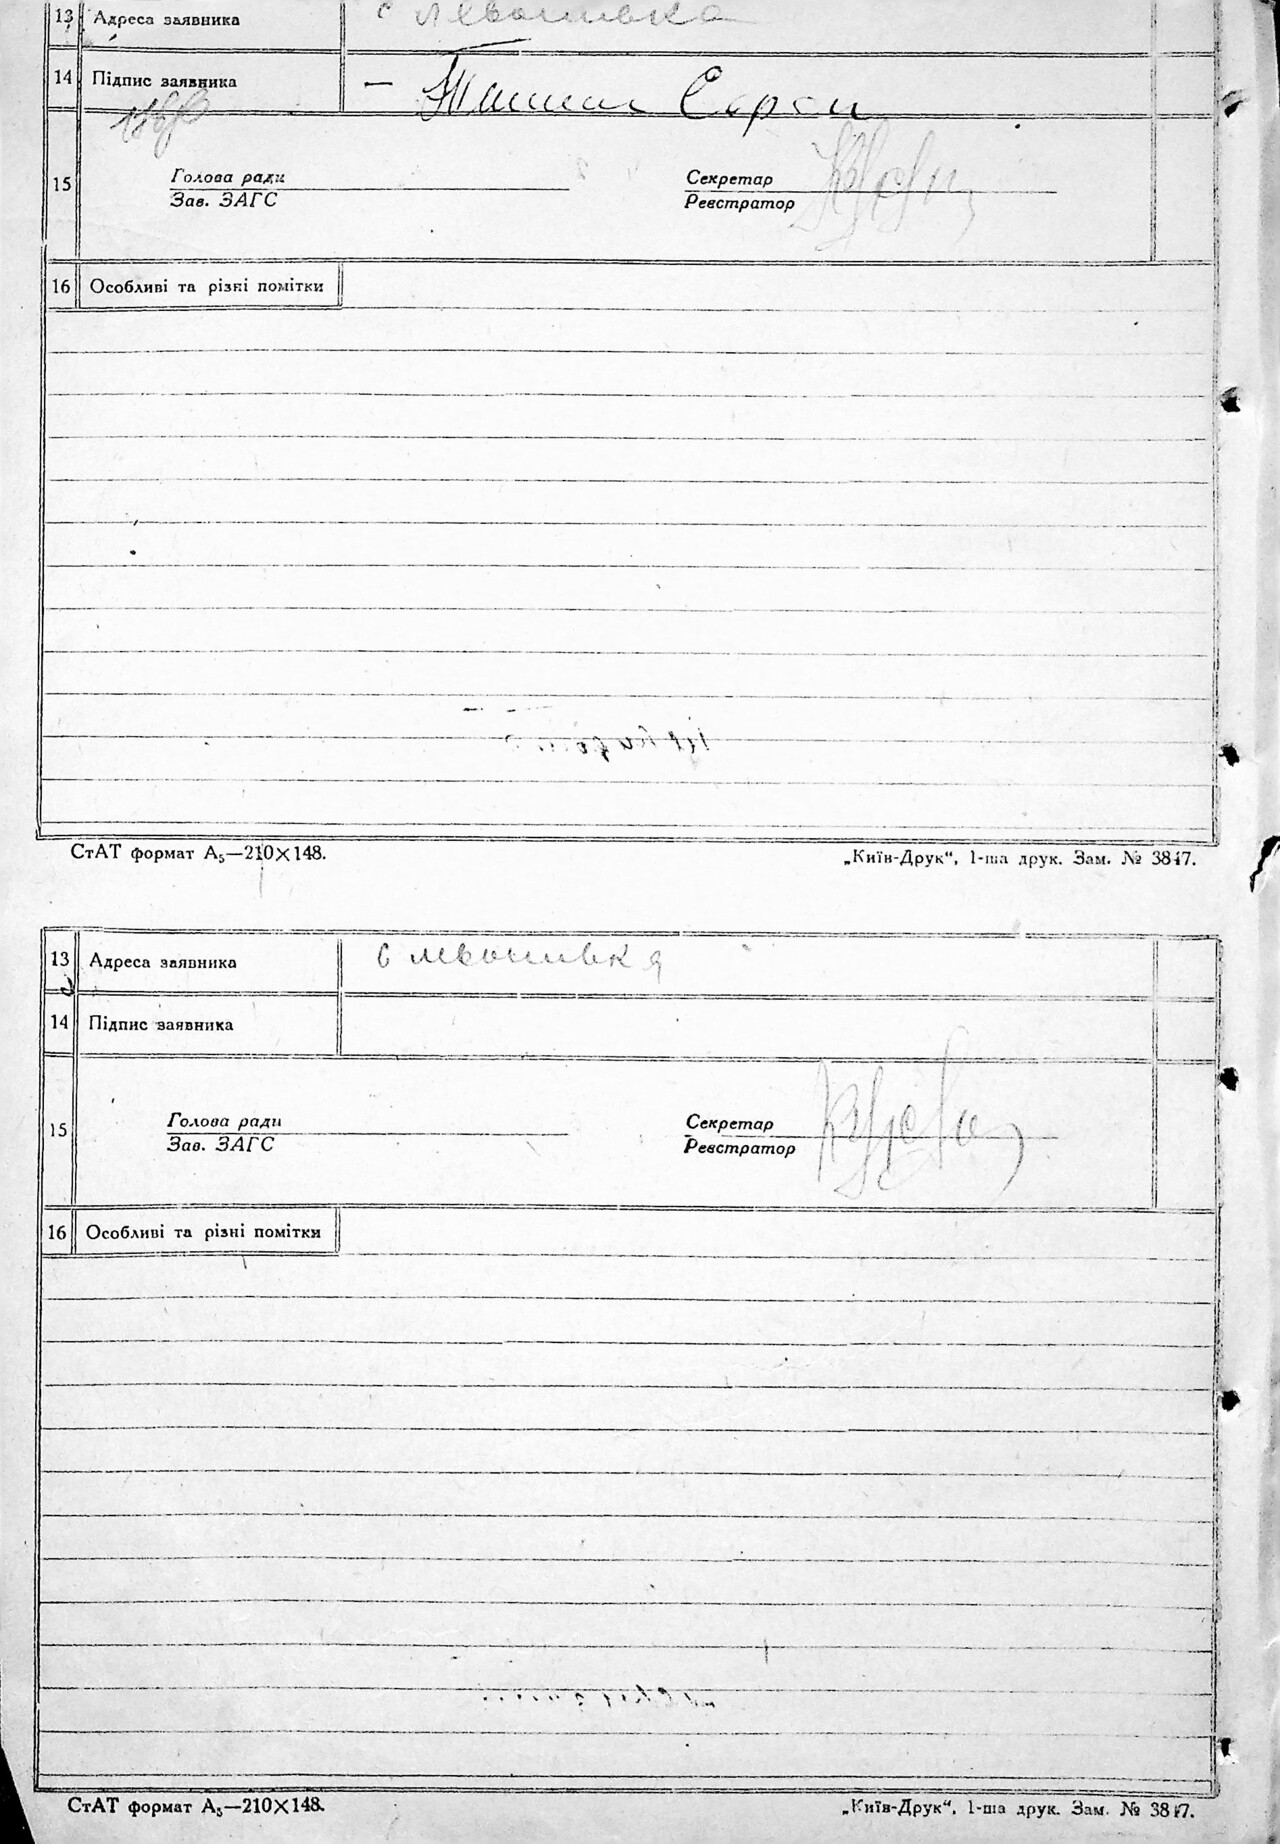 13 Адреса заявника с Левошивка
14 Підпис заявника —
15 Голова ради Секретар
Зав. ЗАГС Реєстратор
16 Особливі та різні помітки
СтАТ формат А₅—210×148. „Київ-Друк“, 1-ша друк. Зам. № 3847.
13 Адреса заявника с Левошивка
14 Підпис заявника
15 Голова ради Секретар
Зав. ЗАГС Реєстратор
16 Особливі та різні помітки
СтАТ формат А₅—210×148. „Київ-Друк“, 1-ша друк. Зам. № 3847.